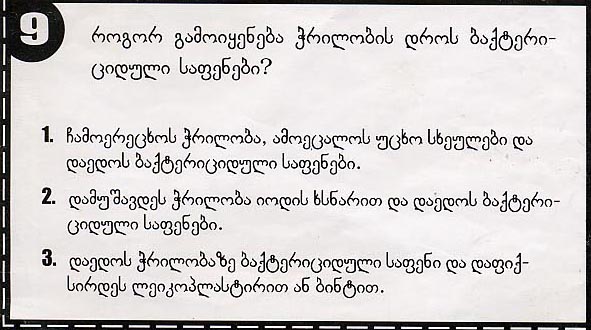 9
როგორ გამოიყენება ჭრილობის დროს ბაქტერი-
ციდული საფენები?
1. ჩამოერეცხოს ჭრილობა, ამოეცალოს უცხო სხეულები და
დაედოს ბაქტერიციდული საფენები.
2. დამუშავდეს ჭრილობა იოდის ხსნარით და დაედოს ბაქტერი-
ციდული საფენები.
3. დაედოს ჭრილობაზე ბაქტერიციდული საფენი და დაფიქ-
სირდეს ლეიკოპლასტირით ან ბინტით.